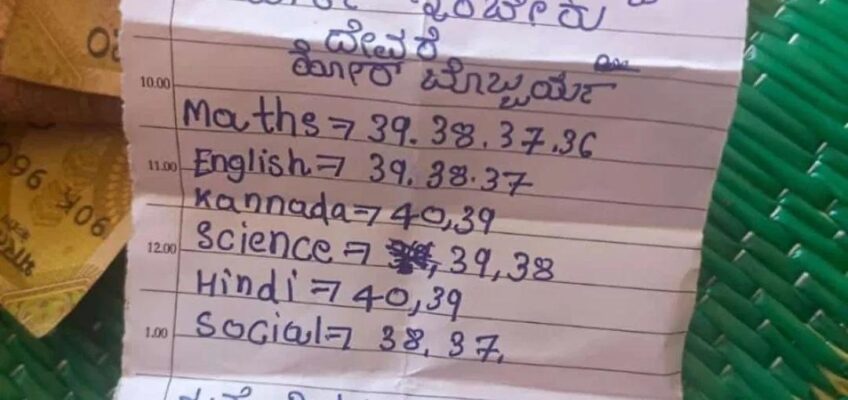 ದೇವರೆ
ಬೊಬ್ಬರ್ಯ
10.00
Maths ⇒ 39.38.37.36
11.00
English ⇒ 39.38.37
Kannada ⇒ 40,39
12.00
Science ⇒ , 39,38
Hindi ⇒ 40,39
1.00
Social ⇒ 38, 37,